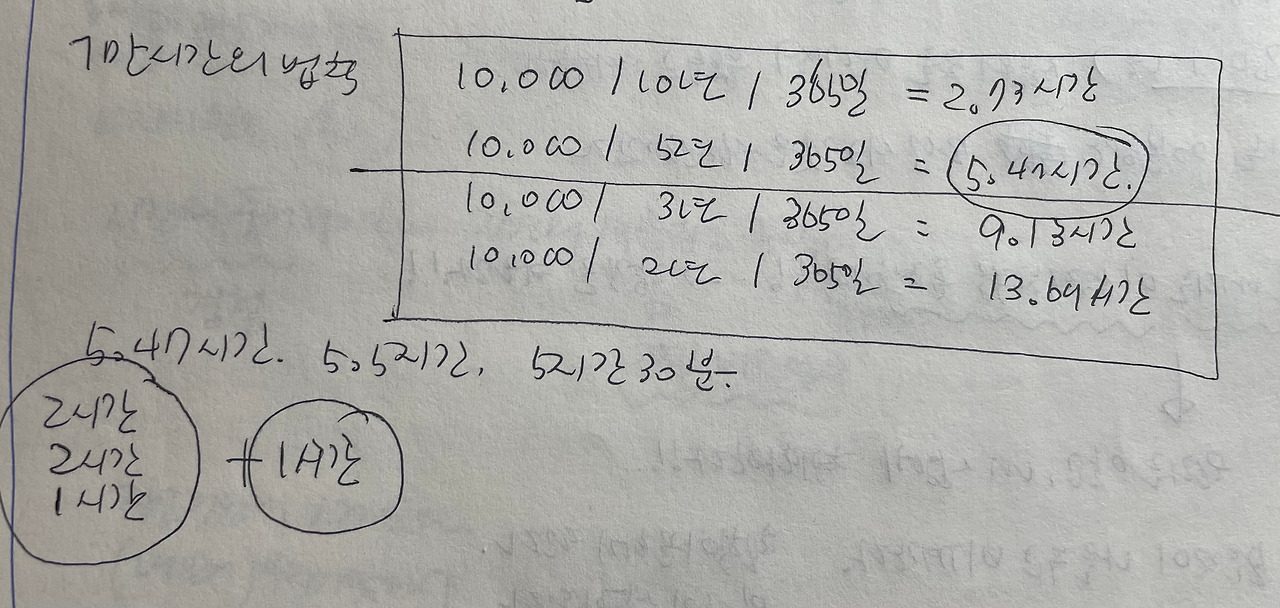 1만시간의 법칙
10,000 / 10년 / 365일 = 2.73시간
10.000 / 5년 / 365일 = 5.47시간.
10,000 / 3년 / 365일 = 9.13시간
10,000 / 2년 / 365일 = 13.69시간
5.47시간. 5.5시간. 5시간 30분.
2시간
2시간 + 1시간
1시간